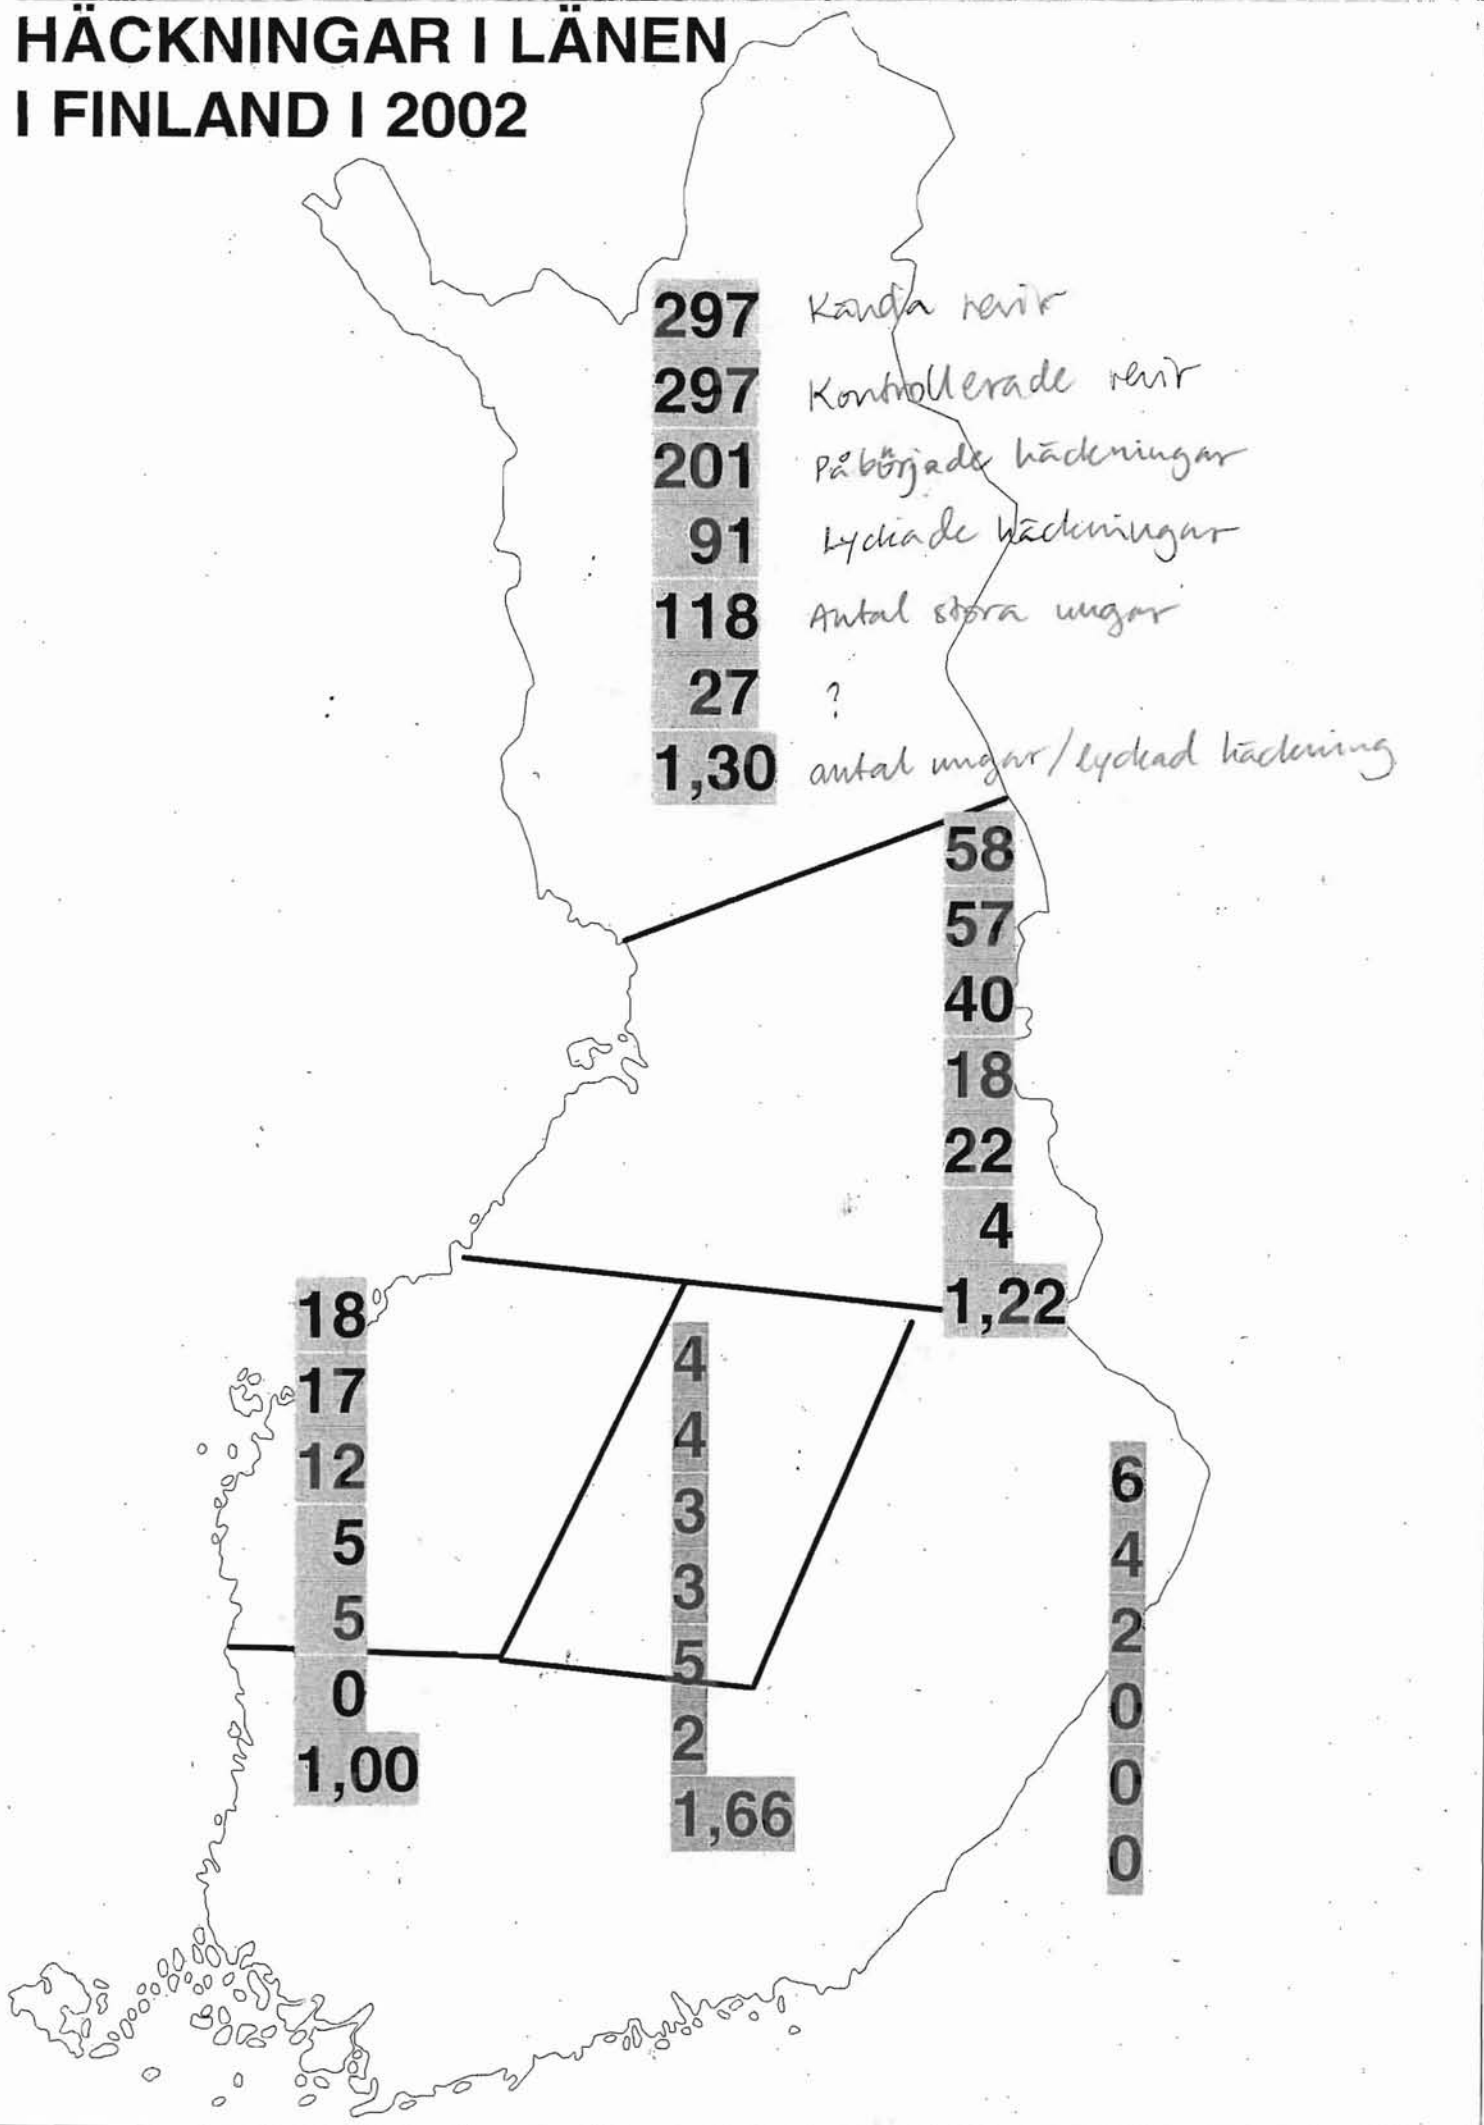 HÄCKNINGAR I LÄNEN
I FINLAND I 2002
297 Kända revir
297 Kontrollerade revir
201 Påbörjade häckningar
91 Lyckade häckningar
118 Antal stora ungar
27 ?
1,30 antal ungar/lyckad häckning
58
57
40
18
22
4
1,22
18
17
12
5
5
0
1,00
4
4
3
3
5
2
1,66
6
4
2
0
0
0